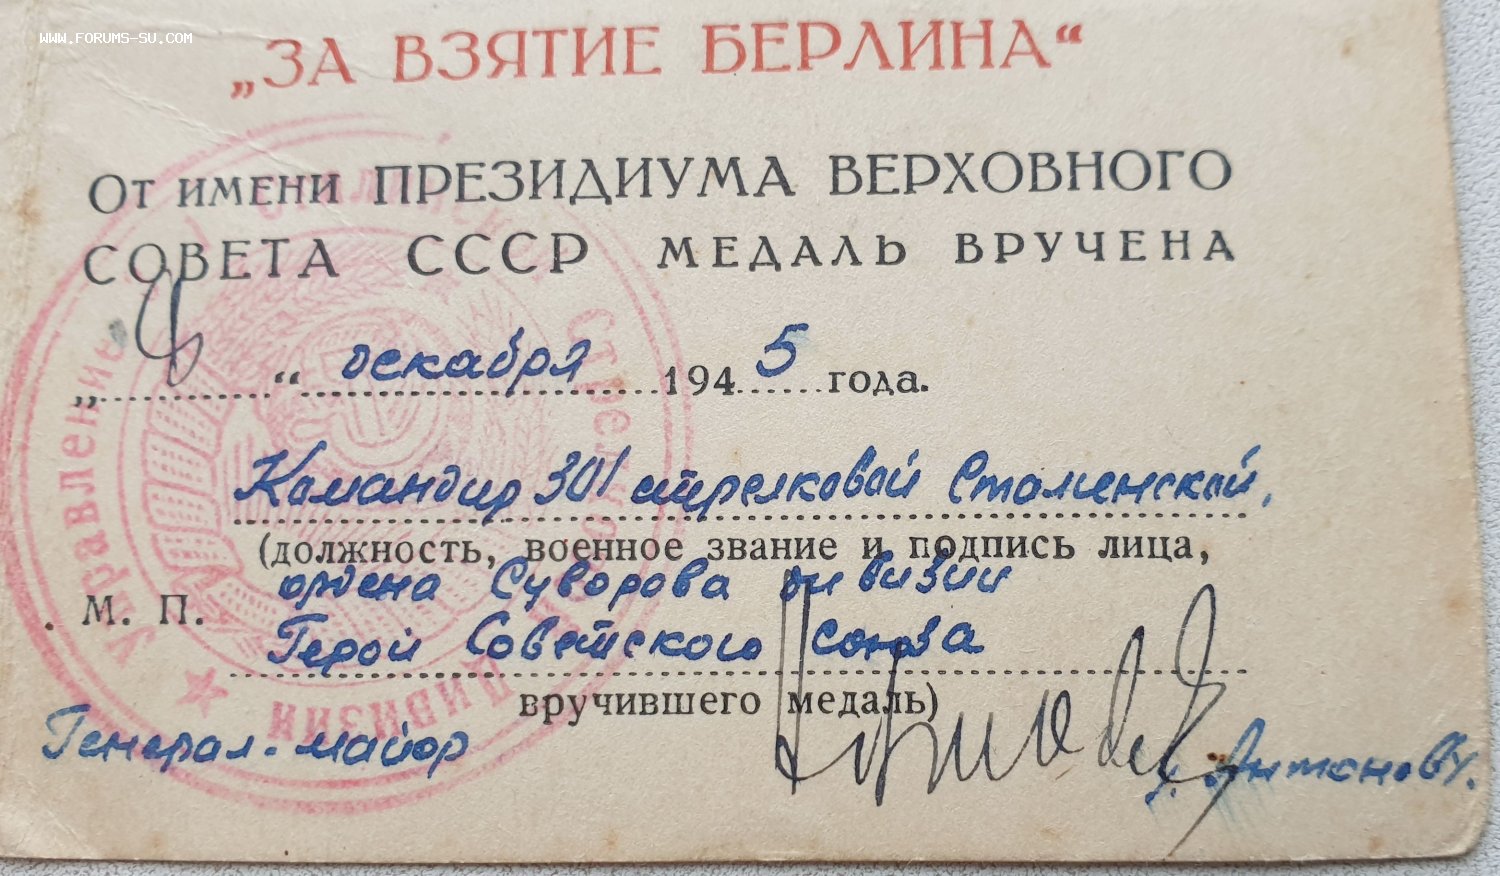 WWW.FORUMS-SU.COM
„ЗА ВЗЯТИЕ БЕРЛИНА“
ОТ ИМЕНИ ПРЕЗИДИУМА ВЕРХОВНОГО
СОВЕТА СССР МЕДАЛЬ ВРУЧЕНА
„ “ декабря 1945 года.
Командир 301 стрелковой Сталинской,
(должность, военное звание и подпись лица,
ордена Суворова дивизии
М. П.
Герой Советского Союза
вручившего медаль)
Генерал-майор
Антонов
Управление
Стрелковой
дивизии